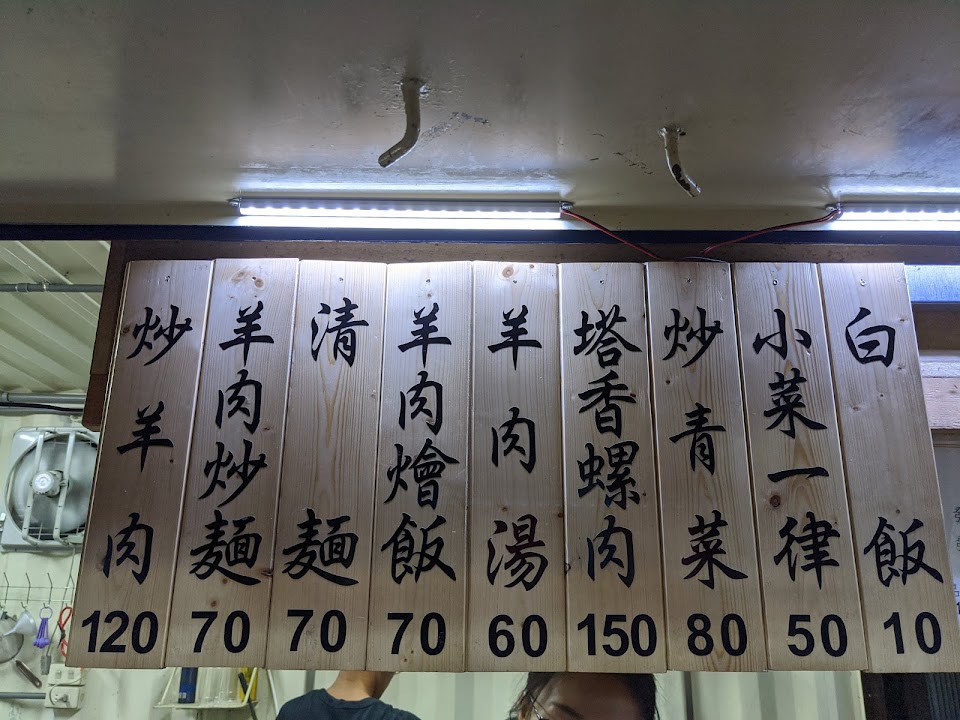 炒羊肉 120
羊肉炒麵 70
清麵 70
羊肉燴飯 70
羊肉湯 60
塔香螺肉 150
炒青菜 80
小菜一律 50
白飯 10